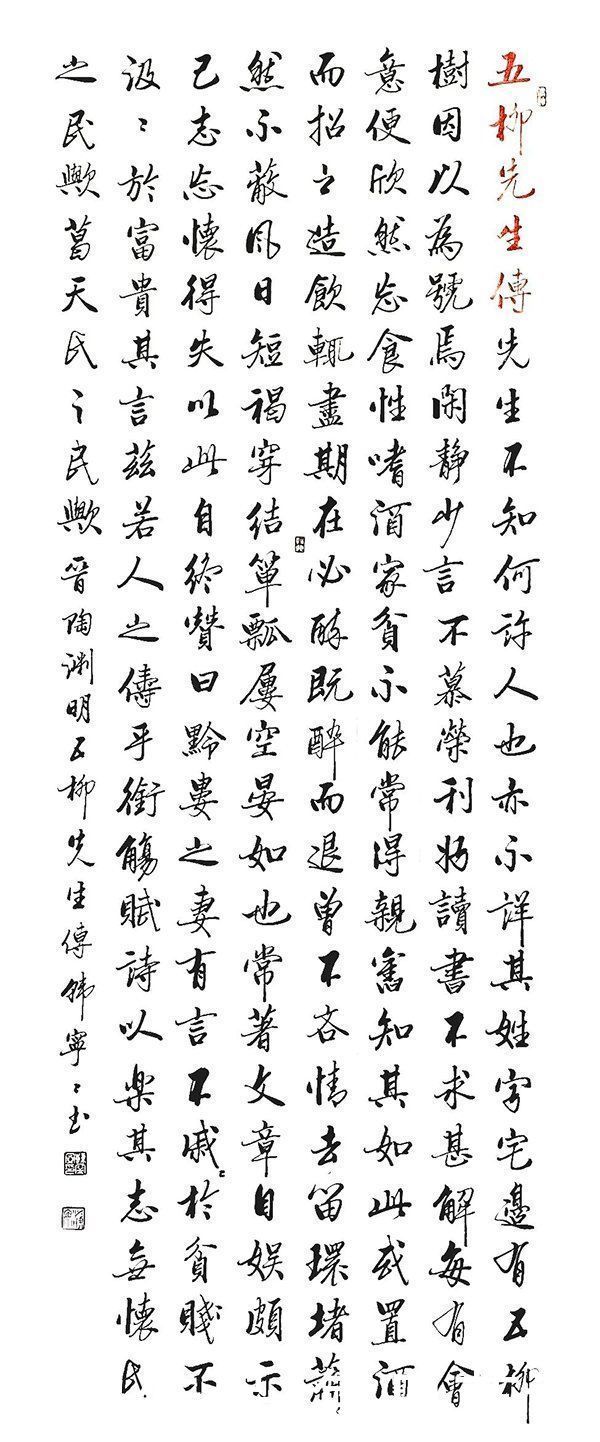 五柳先生傳先生不知何許人也亦不詳其姓字宅邊有五柳
樹因以為號焉閑靜少言不慕榮利好讀書不求甚解每有會
意便欣然忘食性嗜酒家貧不能常得親舊知其如此或置酒
而招之造飲輒盡期在必醉既醉而退曾不吝情去留環堵蕭
然不蔽風日短褐穿結簞瓢屢空晏如也常著文章自娛頗示
己志忘懷得失以此自終贊曰黔婁之妻有言不戚〻於貧賤不
汲〻於富貴其言茲若人之儔乎銜觴賦詩以樂其志無懷氏
之民歟葛天氏之民歟晉陶渊明五柳先生傳韓寧〻书